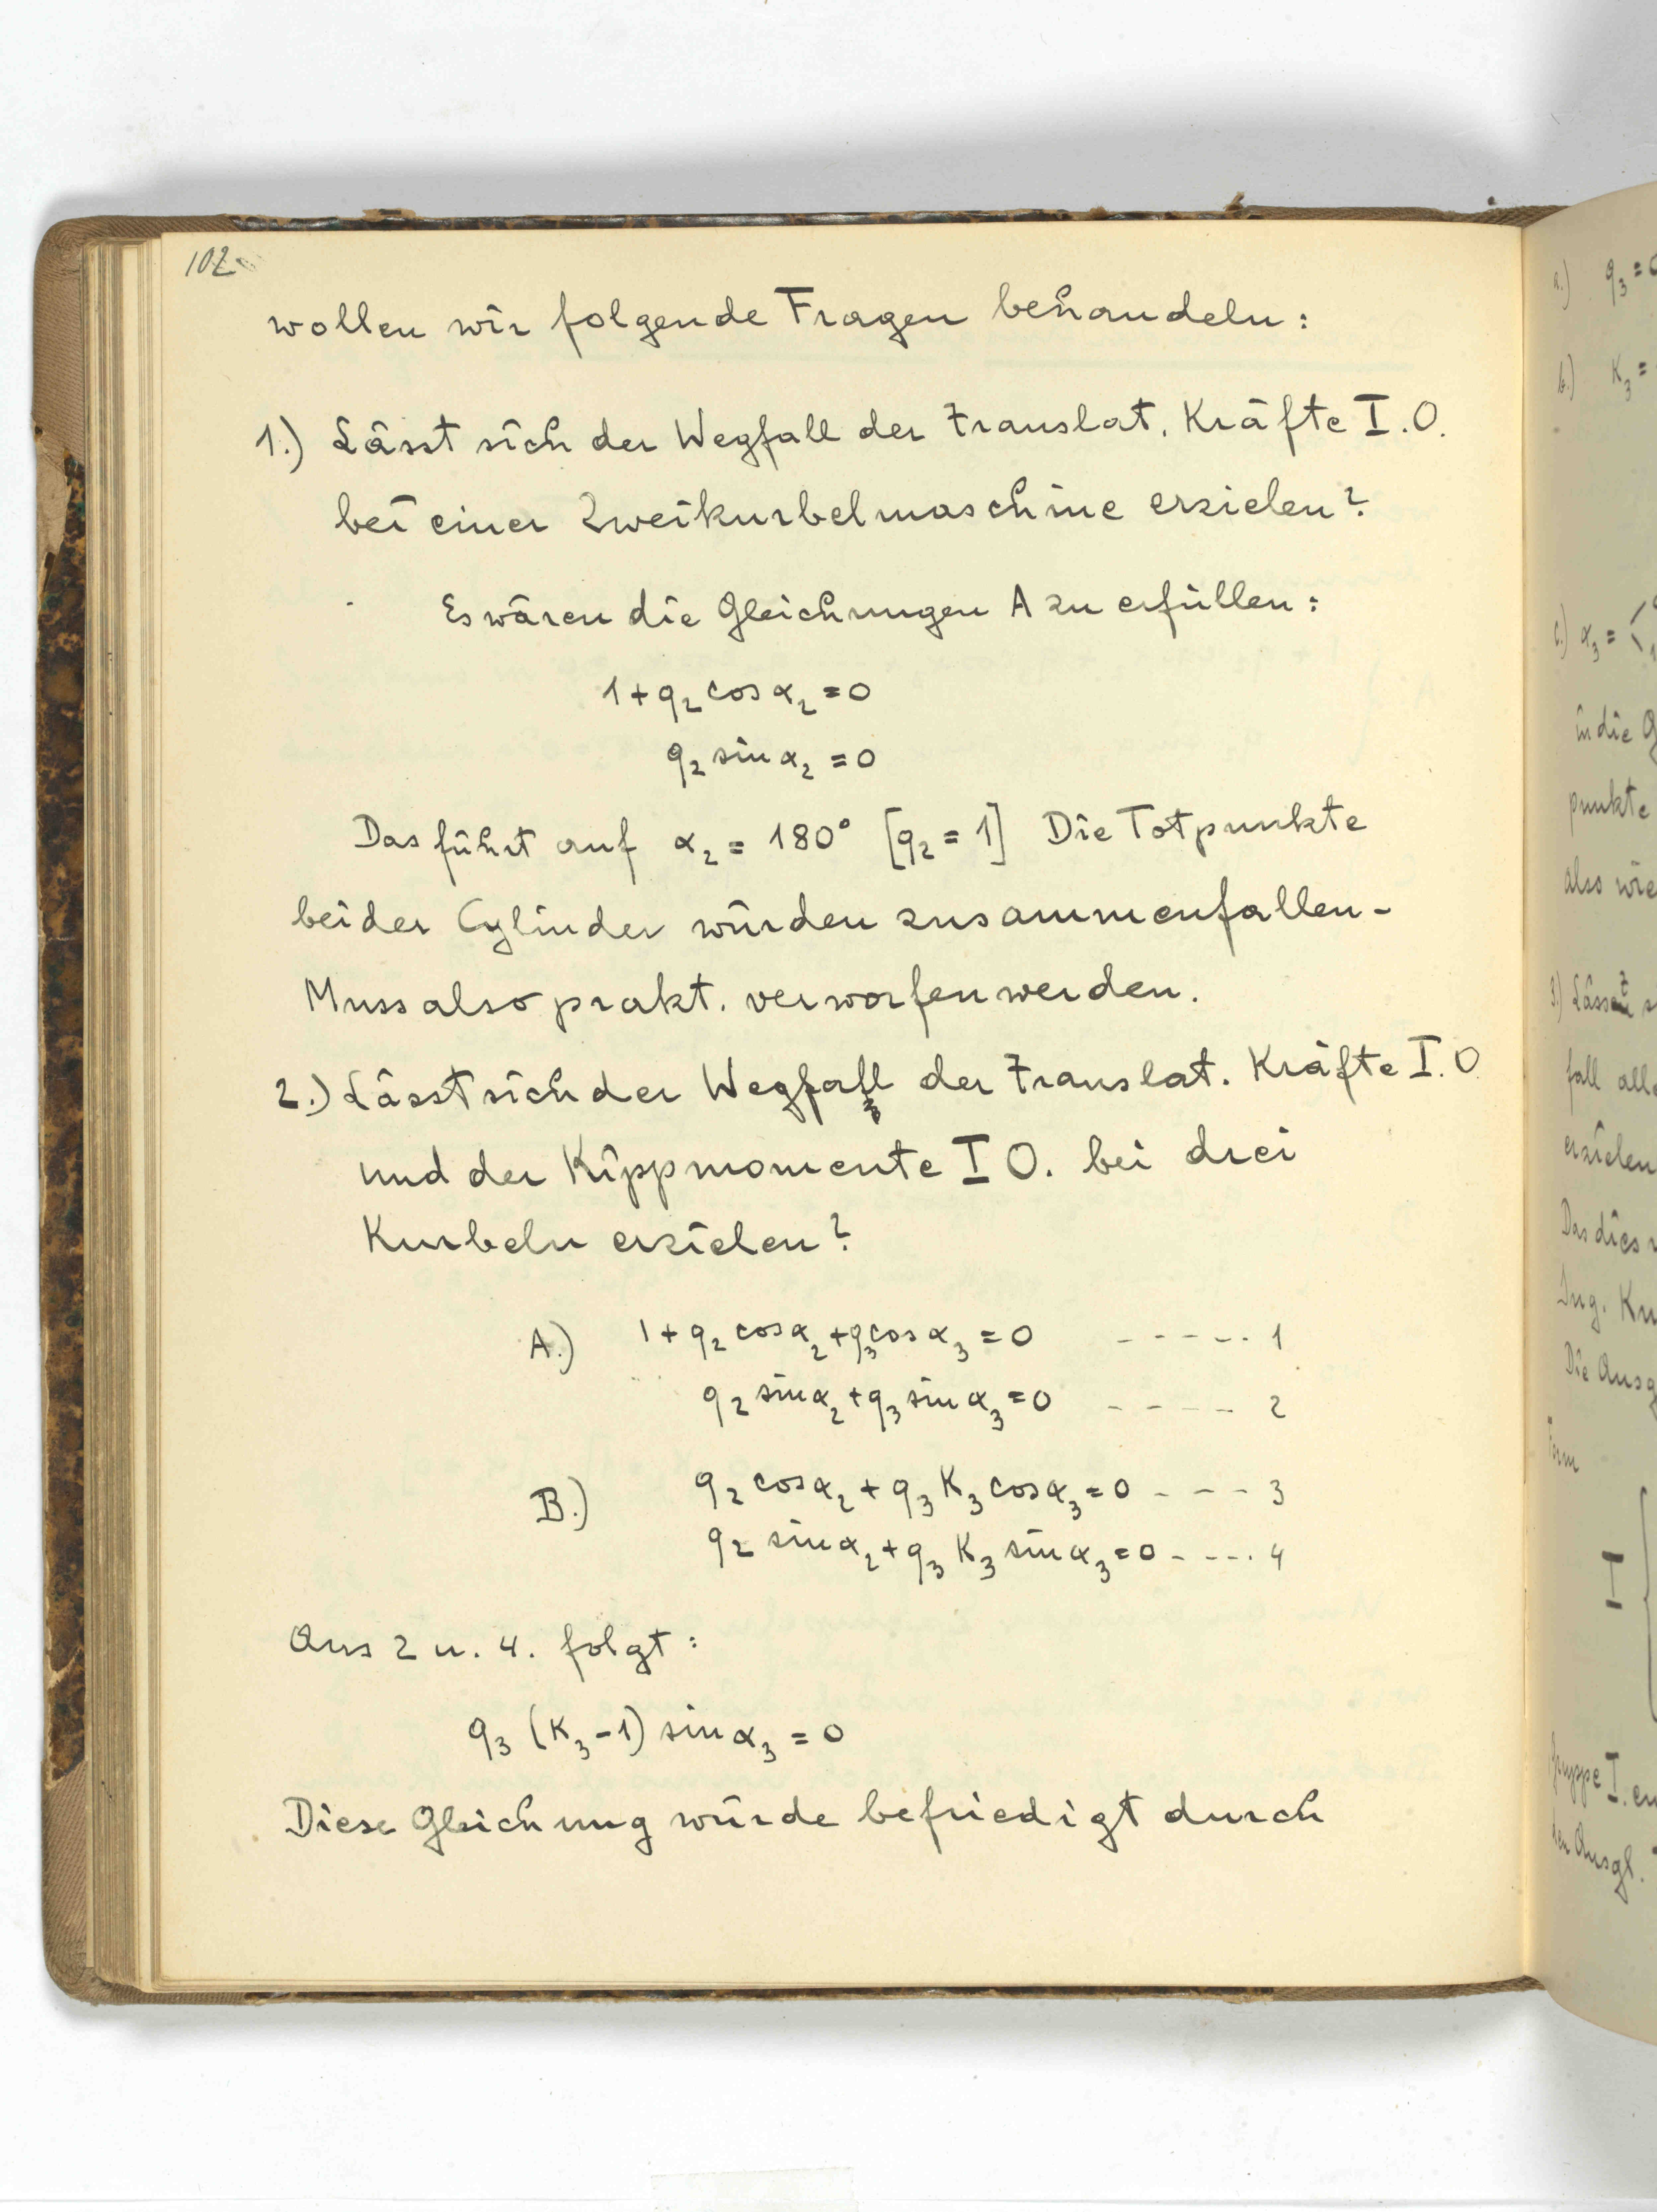 102
wollen wir folgende Fragen behandeln:
1.) Lässt sich der Wegfall der Translat. Kräfte I.O.
bei einer Zweikurbelmaschine erzielen?
Es wären die Gleichungen A zu erfüllen:
1 + q₂ cos α₂ = 0
q₂ sin α₂ = 0
Das führt auf α₂ = 180° [q₂ = 1] Die Totpunkte
beider Cylinder würden zusammenfallen-
Muss also prakt. verworfen werden.
2.) Lässt sich der Wegfall der Translat. Kräfte I.O
und der Kippmomente I O. bei drei
Kurbeln erzielen?
A.) 1 + q₂ cos α₂ + q₃ cos α₃ = 0 ----- 1
q₂ sin α₂ + q₃ sin α₃ = 0 ----- 2
B.) q₂ cos α₂ + q₃ K₃ cos α₃ = 0 - - - 3
q₂ sin α₂ + q₃ K₃ sin α₃ = 0 - --- 4
Aus 2 u. 4. folgt:
q₃ (K₃ - 1) sin α₃ = 0
Diese Gleichung würde befriedigt durch
a.) q₃ =
b.) K₃ =
c.) α₃ =
in die
punkte
also wie
3.) Lässt
fall alle
erzielen
Das dies
Ing.
Die
I
Gruppe I.
Ausgl.